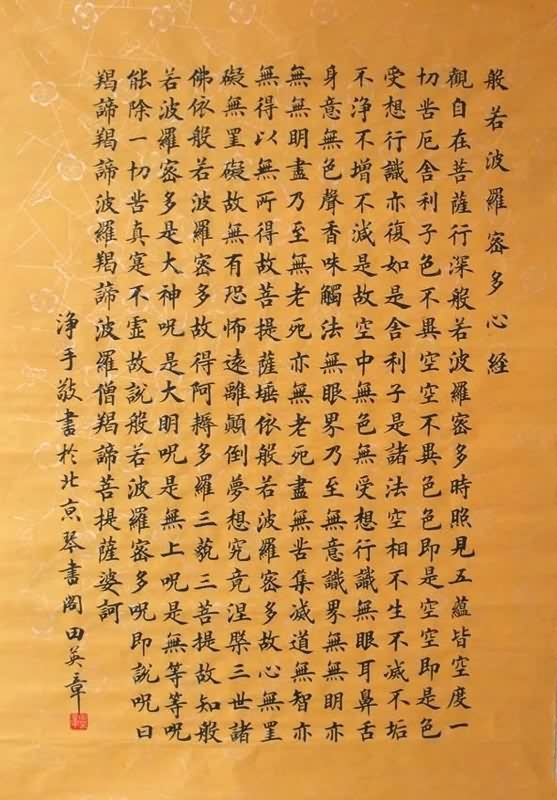 般若波羅密多心經
觀自在菩薩行深般若波羅密多時照見五蘊皆空度一
切苦厄舍利子色不異空空不異色色即是空空即是色
受想行識亦復如是舍利子是諸法空相不生不滅不垢
不淨不增不減是故空中無色無受想行識無眼耳鼻舌
身意無色聲香味觸法無眼界乃至無意識界無無明亦
無無明盡乃至無老死亦無老死盡無苦集滅道無智亦
無得以無所得故菩提薩埵依般若波羅密多故心無罣
礙無罣礙故無有恐怖遠離顛倒夢想究竟涅槃三世諸
佛依般若波羅密多故得阿耨多羅三藐三菩提故知般
若波羅密多是大神呪是大明呪是無上呪是無等等呪
能除一切苦真寔不虛故說般若波羅密多呪即說呪曰
羯諦羯諦波羅羯諦波羅僧羯諦菩提薩婆訶
淨手敬書於北京琴書閣田英章